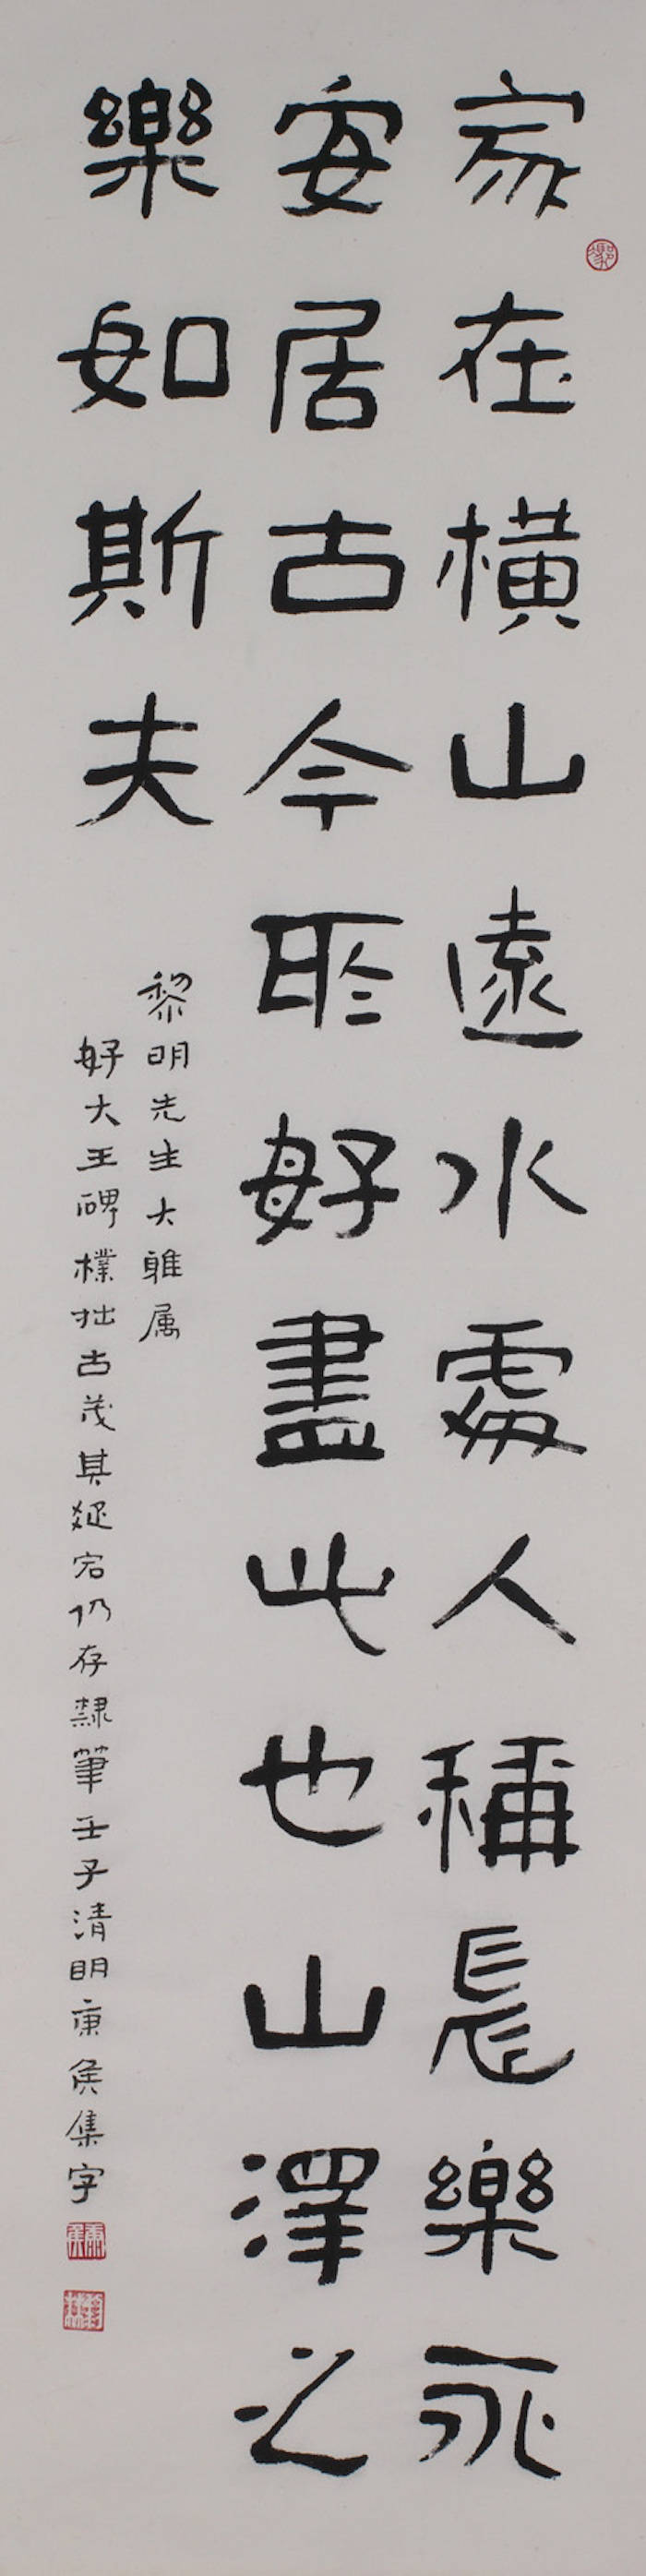 家在橫山遠水處人稱長樂永
安居古今所好盡此也山澤之
樂如斯夫
黎明先生大雅属
好大王碑樸拙古茂其延宕仍存隸筆壬子清明康侯集字